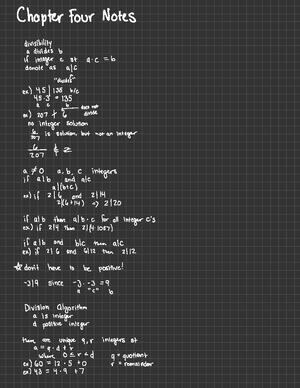 Chapter Four Notes
divisibility
a divides b
if integer c st a·c = b
denote as a|c
"divides"
ex) 45 | 135 b/c
45·3 = 135
a c b
does not divide
ex) 207 ∤ 6
no integer solution
6/207 is solution, but not an integer
6/207 ∉ Z
a ≠ 0 a, b, c integers
if a|b and a|c
a|(b+c)
ex) if 2|6 and 2|14
2|(6+14) => 2|20
if a|b than a|b·c for all integer c's
ex) if 2|4 than 2|(4·1087)
if a|b and b|c then a|c
ex) if 2|6 and 6|12 then 2|12
☆ don't have to be positive!
-3|9 since -3·-3 = 9
a "c" b
Division Algorithm
a is integer
d positive integer
there are unique q, r integers st
a = q·d + r
where 0 ≤ r < d q = quotient
ex) 60 = 12·5 + 0 r = remainder
ex) 43 = 4·9 + 7